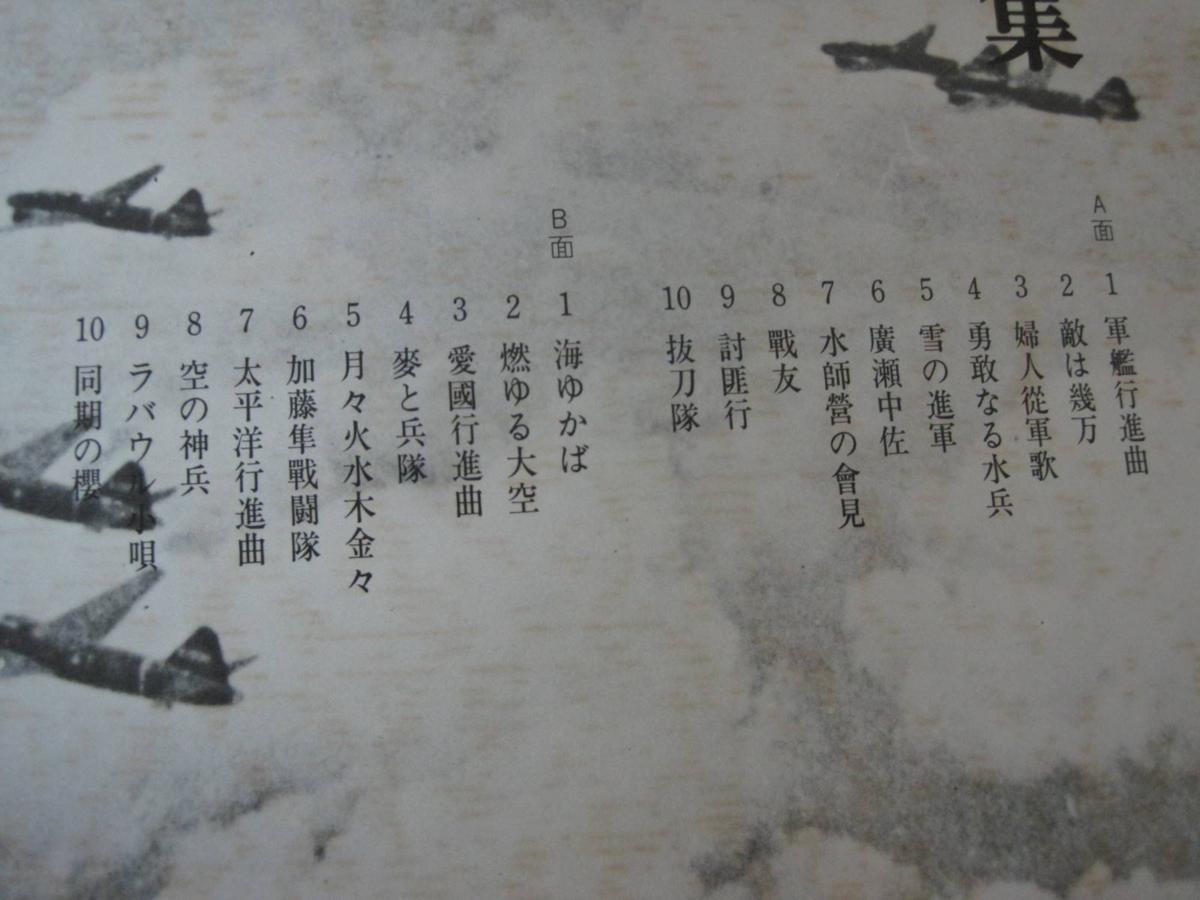 集
A面
1 軍艦行進曲
2 敵は幾万
3 婦人從軍歌
4 勇敢なる水兵
5 雪の進軍
6 廣瀬中佐
7 水師營の會見
8 戰友
9 討匪行
10 抜刀隊
B面
1 海ゆかば
2 燃ゆる大空
3 愛國行進曲
4 麥と兵隊
5 月々火水木金々
6 加藤隼戰闘隊
7 太平洋行進曲
8 空の神兵
9 ラバウル小唄
10 同期の櫻